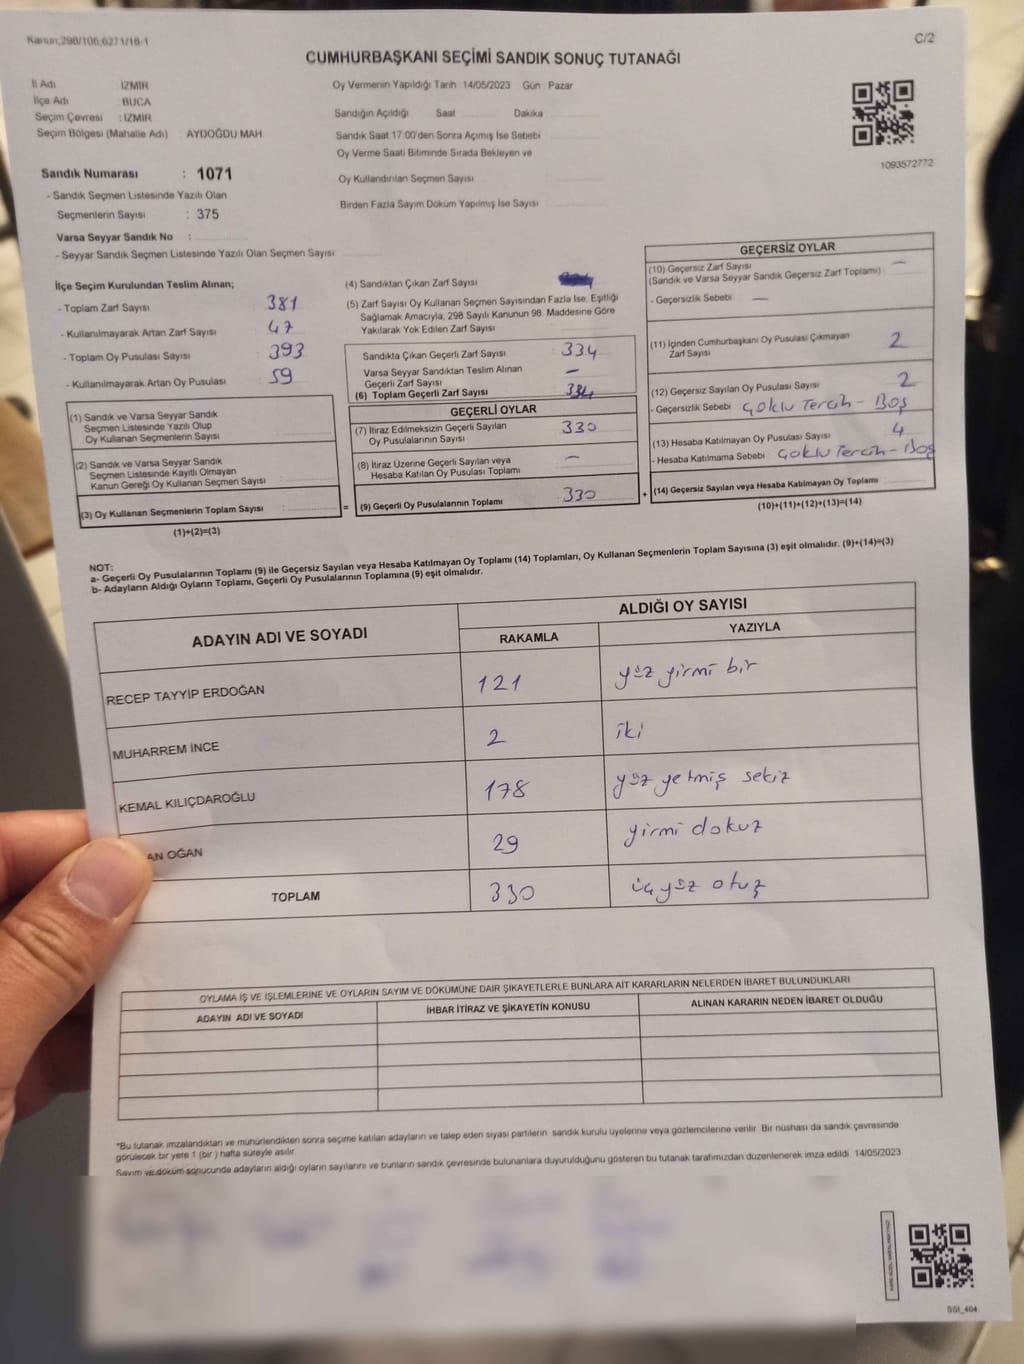 Kanun:298/106,6271/18-1
C/2
CUMHURBAŞKANI SEÇİMİ SANDIK SONUÇ TUTANAĞI
İl Adı : İZMİR
İlçe Adı : BUCA
Seçim Çevresi : İZMİR
Seçim Bölgesi (Mahalle Adı) : AYDOĞDU MAH.
Oy Vermenin Yapıldığı Tarih : 14/05/2023 Gün : Pazar
Sandığın Açıldığı Saat Dakika
Sandık Saat 17:00'den Sonra Açımış İse Sebebi
Oy Verme Saati Bitiminde Sırada Bekleyen ve
Oy Kullandırılan Seçmen Sayısı
Birden Fazla Sayım Döküm Yapılmış İse Sayısı
1093572772
Sandık Numarası : 1071
- Sandık Seçmen Listesinde Yazılı Olan
Seçmenlerin Sayısı : 375
Varsa Seyyar Sandık No :
- Seyyar Sandık Seçmen Listesinde Yazılı Olan Seçmen Sayısı:
İlçe Seçim Kurulundan Teslim Alınan;
- Toplam Zarf Sayısı 381
- Kullanılmayarak Artan Zarf Sayısı 47
- Toplam Oy Pusulası Sayısı 393
- Kullanılmayarak Artan Oy Pusulası 59
(1) Sandık ve Varsa Seyyar Sandık
Seçmen Listesinde Yazılı Olup
Oy Kullanan Seçmenlerin Sayısı :
(2) Sandık ve Varsa Seyyar Sandık
Seçmen Listesinde Kayıtlı Olmayan
Kanun Gereği Oy Kullanan Seçmen Sayısı :
(3) Oy Kullanan Seçmenlerin Toplam Sayısı :
(1)+(2)=(3)
(4) Sandıktan Çıkan Zarf Sayısı
(5) Zarf Sayısı Oy Kullanan Seçmen Sayısından Fazla İse, Eşitliği
Sağlamak Amacıyla, 298 Sayılı Kanunun 98. Maddesine Göre
Yakılarak Yok Edilen Zarf Sayısı
Sandıkta Çıkan Geçerli Zarf Sayısı 334
Varsa Seyyar Sandıktan Teslim Alınan
Geçerli Zarf Sayısı –
(6) Toplam Geçerli Zarf Sayısı 334
GEÇERLİ OYLAR
(7) İtiraz Edilmeksizin Geçerli Sayılan
Oy Pusulalarının Sayısı 330
(8) İtiraz Üzerine Geçerli Sayılan veya
Hesaba Katılan Oy Pusulası Toplamı –
= (9) Geçerli Oy Pusulalarının Toplamı 330
GEÇERSİZ OYLAR
(10) Geçersiz Zarf Sayısı –
(Sandık ve Varsa Seyyar Sandık Geçersiz Zarf Toplamı)
- Geçersizlik Sebebi –
(11) İçinden Cumhurbaşkanı Oy Pusulası Çıkmayan
Zarf Sayısı 2
(12) Geçersiz Sayılan Oy Pusulası Sayısı 2
- Geçersizlik Sebebi Çoklu Tercih - Boş
(13) Hesaba Katılmayan Oy Pusulası Sayısı 4
- Hesaba Katılmama Sebebi Çoklu Tercih - Boş
+ (14) Geçersiz Sayılan veya Hesaba Katılmayan Oy Toplamı
(10)+(11)+(12)+(13)=(14)
NOT:
a- Geçerli Oy Pusulalarının Toplamı (9) ile Geçersiz Sayılan veya Hesaba Katılmayan Oy Toplamı (14) Toplamları, Oy Kullanan Seçmenlerin Toplam Sayısına (3) eşit olmalıdır. (9)+(14)=(3)
b- Adayların Aldığı Oyların Toplamı, Geçerli Oy Pusulalarının Toplamına (9) eşit olmalıdır.
ADAYIN ADI VE SOYADI
ALDIĞI OY SAYISI
RAKAMLA YAZIYLA
RECEP TAYYİP ERDOĞAN 121 yüz yirmi bir
MUHARREM İNCE 2 iki
KEMAL KILIÇDAROĞLU 178 yüz yetmiş sekiz
AN OĞAN 29 yirmi dokuz
TOPLAM 330 üçyüz otuz
OYLAMA İŞ VE İŞLEMLERİNE VE OYLARIN SAYIM VE DÖKÜMÜNE DAİR ŞİKAYETLERLE BUNLARA AİT KARARLARIN NELERDEN İBARET BULUNDUKLARI
ADAYIN ADI VE SOYADI İHBAR İTİRAZ VE ŞİKAYETİN KONUSU ALINAN KARARIN NEDEN İBARET OLDUĞU
*Bu tutanak imzalandıktan ve mühürlendikten sonra seçime katılan adayların ve talep eden siyasi partilerin sandık kurulu üyelerine veya gözlemcilerine verilir. Bir nüshası da sandık çevresinde
görülecek bir yere 1 (bir) hafta süreyle asılır.
Sayım ve döküm sonucunda adayların aldığı oyların sayılarını ve bunların sandık çevresinde bulunanlara duyurulduğunu gösteren bu tutanak tarafımızdan düzenlenerek imza edildi. 14/05/2023
SSI_404